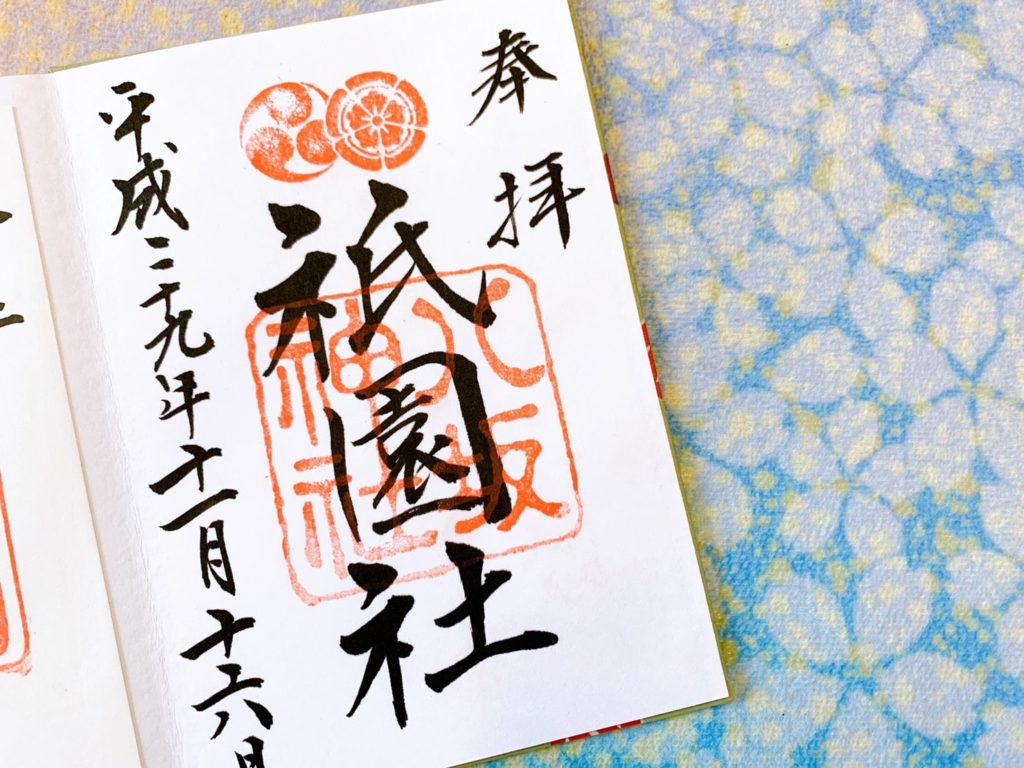 奉拝
祇園社
八坂神社
平成二十九年十一月十六日